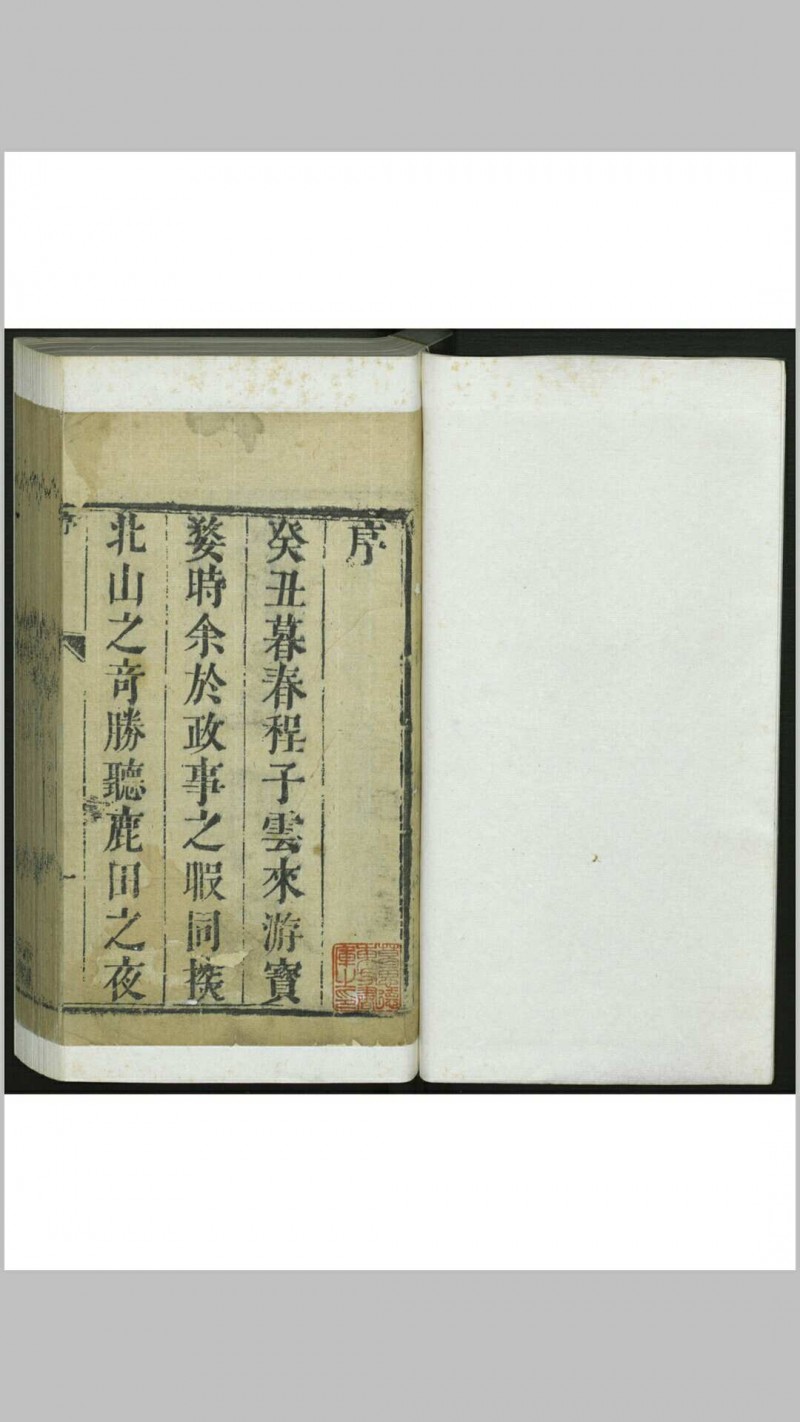 序
癸丑暮春程子雲來游寶
婺時余於政事之暇同揆
北山之奇勝聽鹿田之夜
序
一